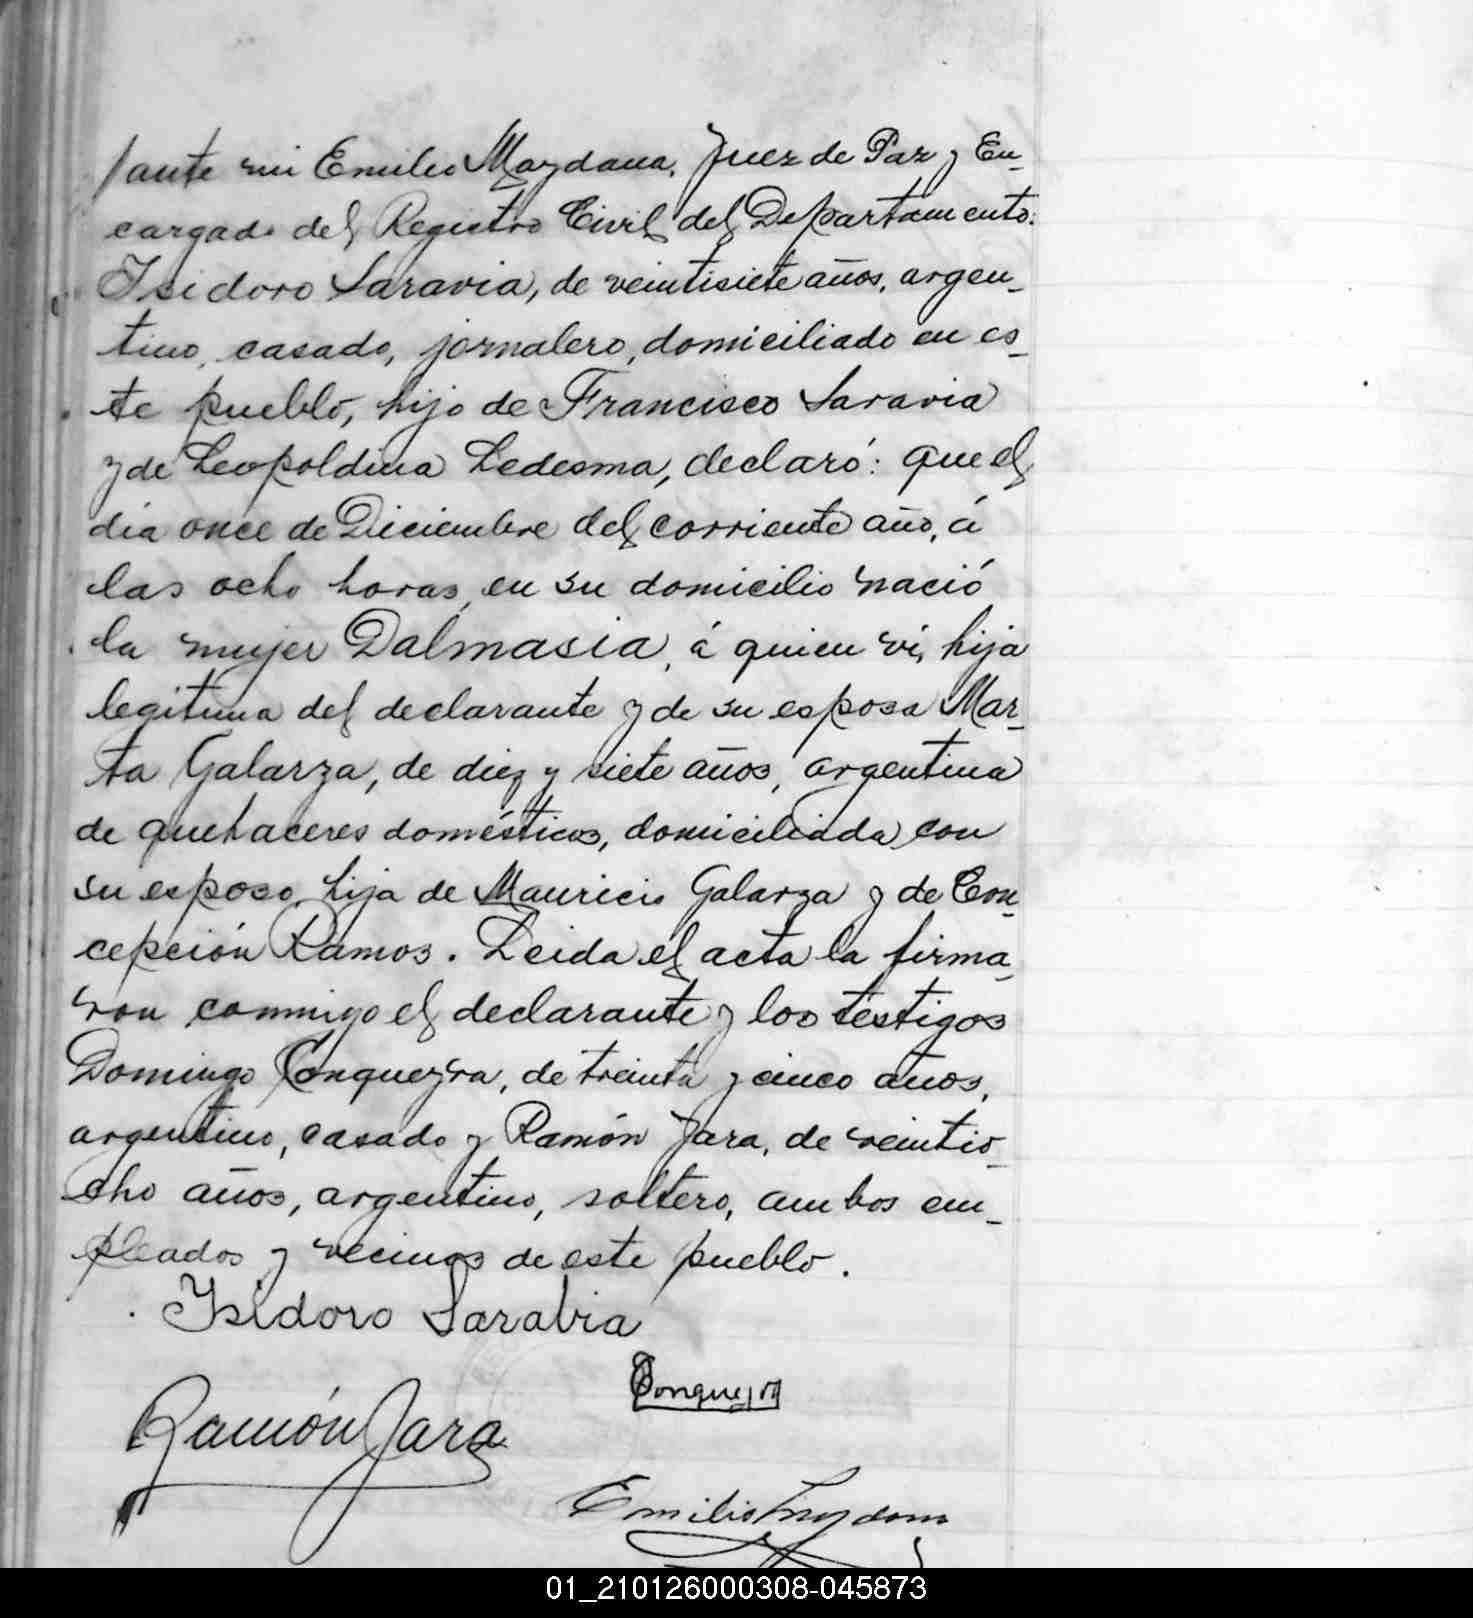 /ante mi Emilio Mazdana, Juez de Paz y En-
cargado del Registro Civil del Departamento:
Isidoro Saravia, de veintisiete años, argen-
tino, casado, jornalero, domiciliado en es-
te pueblo, hijo de Francisco Saravia
y de Leopoldina Ledesma, declaró: que el
día once de Diciembre del corriente año, á
las ocho horas, en su domicilio nació
la mujer Dalmasia, á quien ví, hija
legitima del declarante y de su esposa Mar-
ta Galarza, de diez y siete años, argentina
de quehaceres domésticos, domiciliada con
su esposo, hija de Mauricio Galarza y de Con-
cepción Ramos. Leida el acta la firma-
ron conmigo el declarante y los testigos
Domingo Conqueyra, de treinta y cinco años,
argentino, casado y Ramón Jara, de veintio-
cho años, argentino, soltero, ambos em-
pleados y vecinos de este pueblo.
Isidoro Sarabia
Ramón Jara
Emilio
01_210126000308-045873